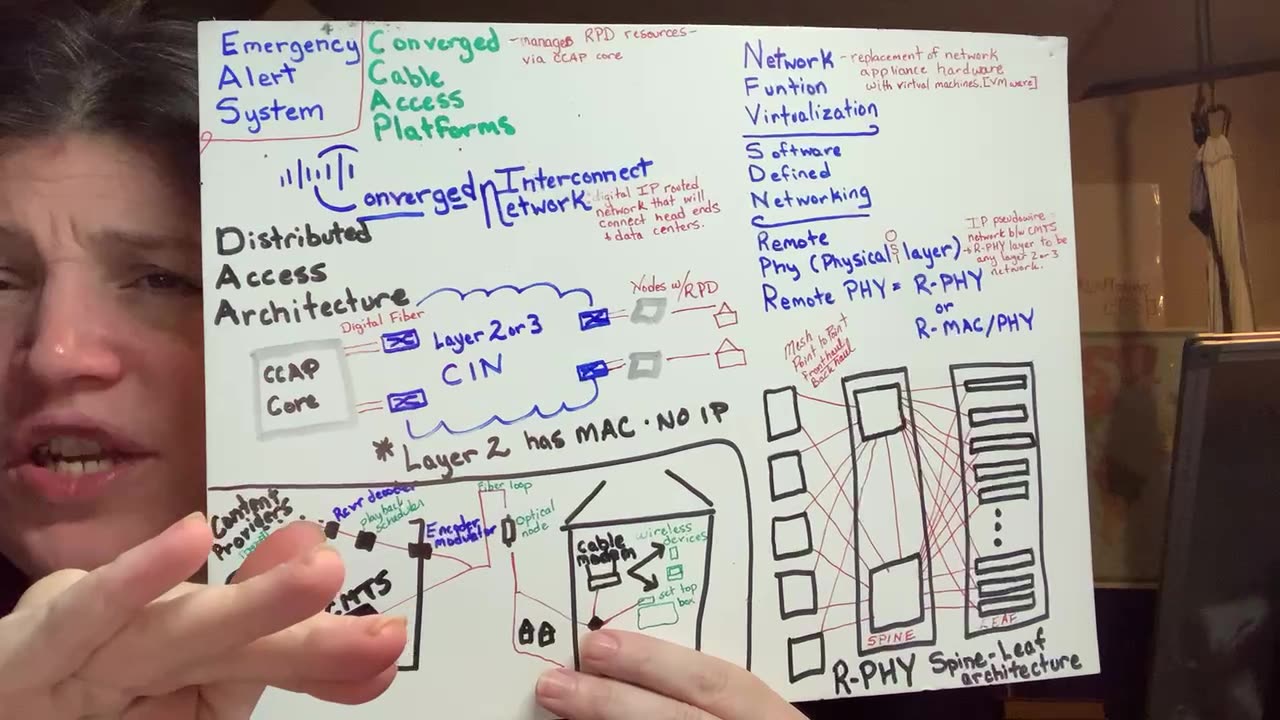 Emergency
Alert
System
Converged
Cable
Access
Platforms
-manages RPD resources-
via CCAP core
Converged Interconnect
Network
digital IP rooted
network that will
connect head ends
+ data centers.
Distributed
Access
Architecture
Digital Fiber
CCAP
Core
Layer 2 or 3
CIN
Nodes w/RPD
* Layer 2 has MAC · NO IP
Content
Providers
Rcvr decoder
playback
scheduler
CMTS
Encoder
modulator
Fiber loop
Optical
node
cable
modem
wireless
devices
set top
box
Network
Funtion
Virtualization
- replacement of network
appliance hardware
with virtual machines.[VM ware]
Software
Defined
Networking
Remote
Phy (Physical layer)
OSI
Remote PHY = R-PHY
or
R-MAC/PHY
IP pseudowire
network b/w CMTS
+ R-PHY layer to be
any layer 2 or 3
network.
Mesh
Point to Point
Fronthaul
Back haul
SPINE
LEAF
R-PHY Spine-Leaf
architecture